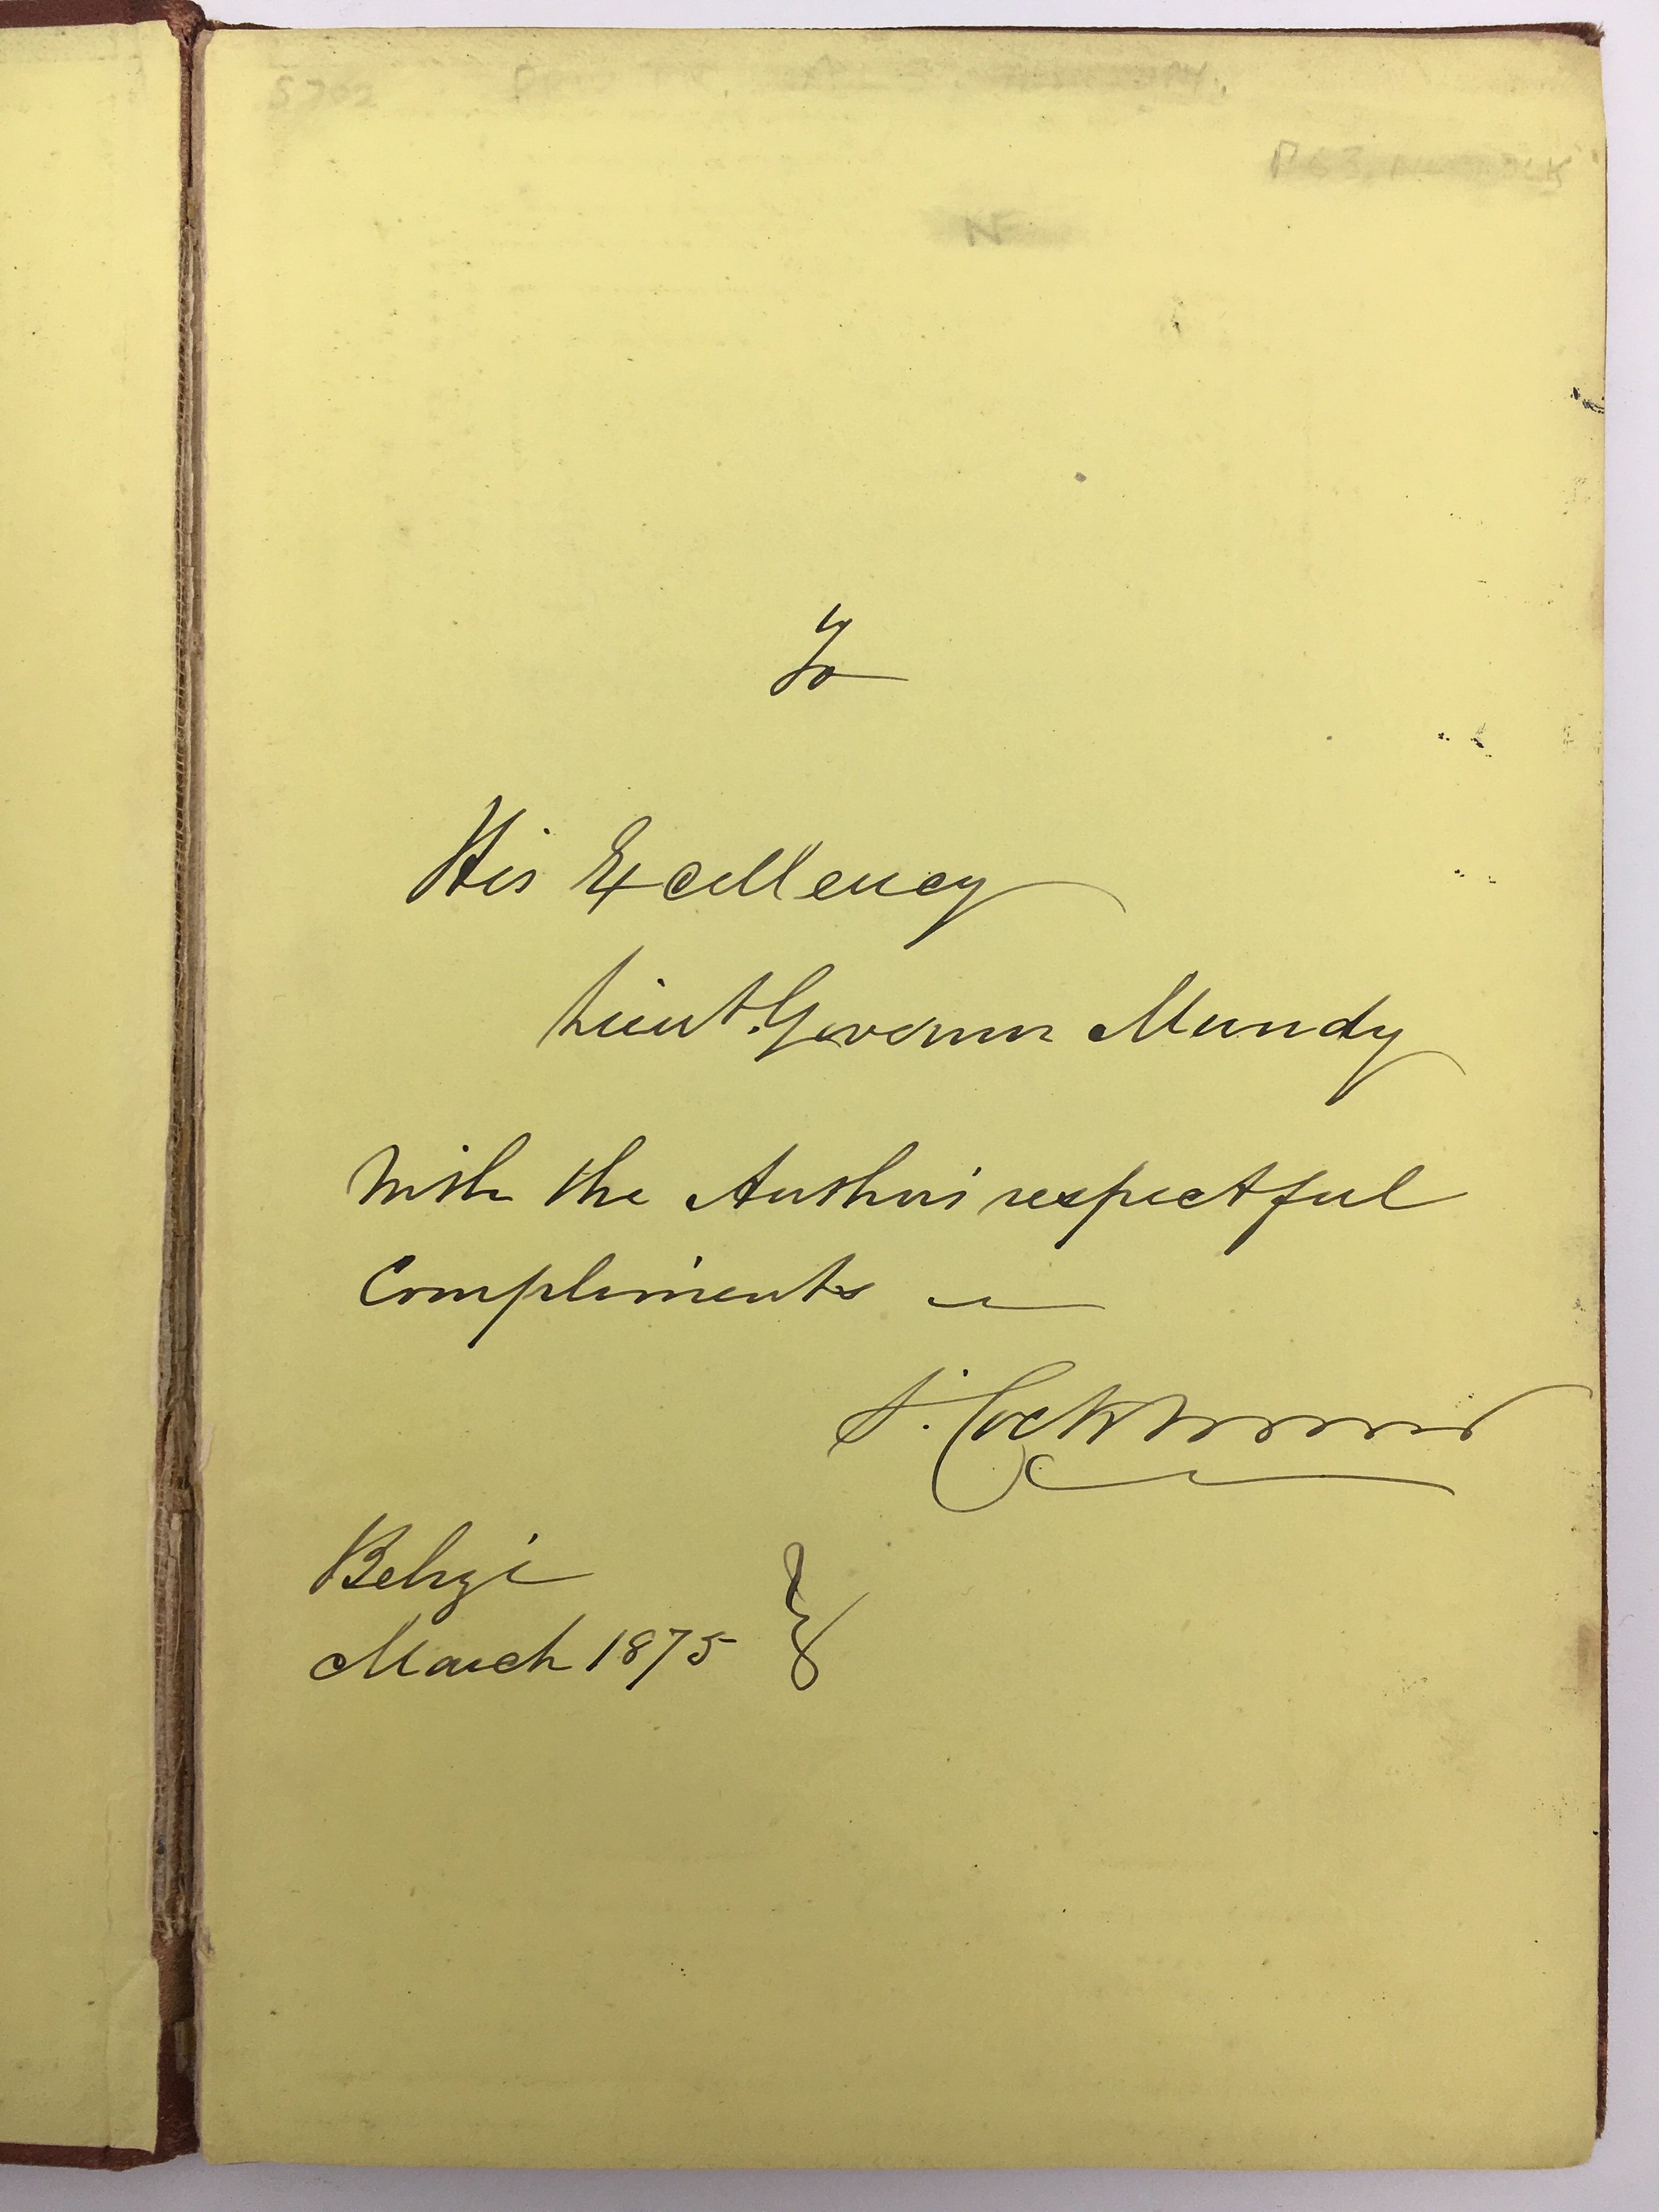 S702
N
To
His Excellency
Lieut. Governor Mundy
With the Author's respectful
Compliments —
S. Cockburn
Belize
March 1875